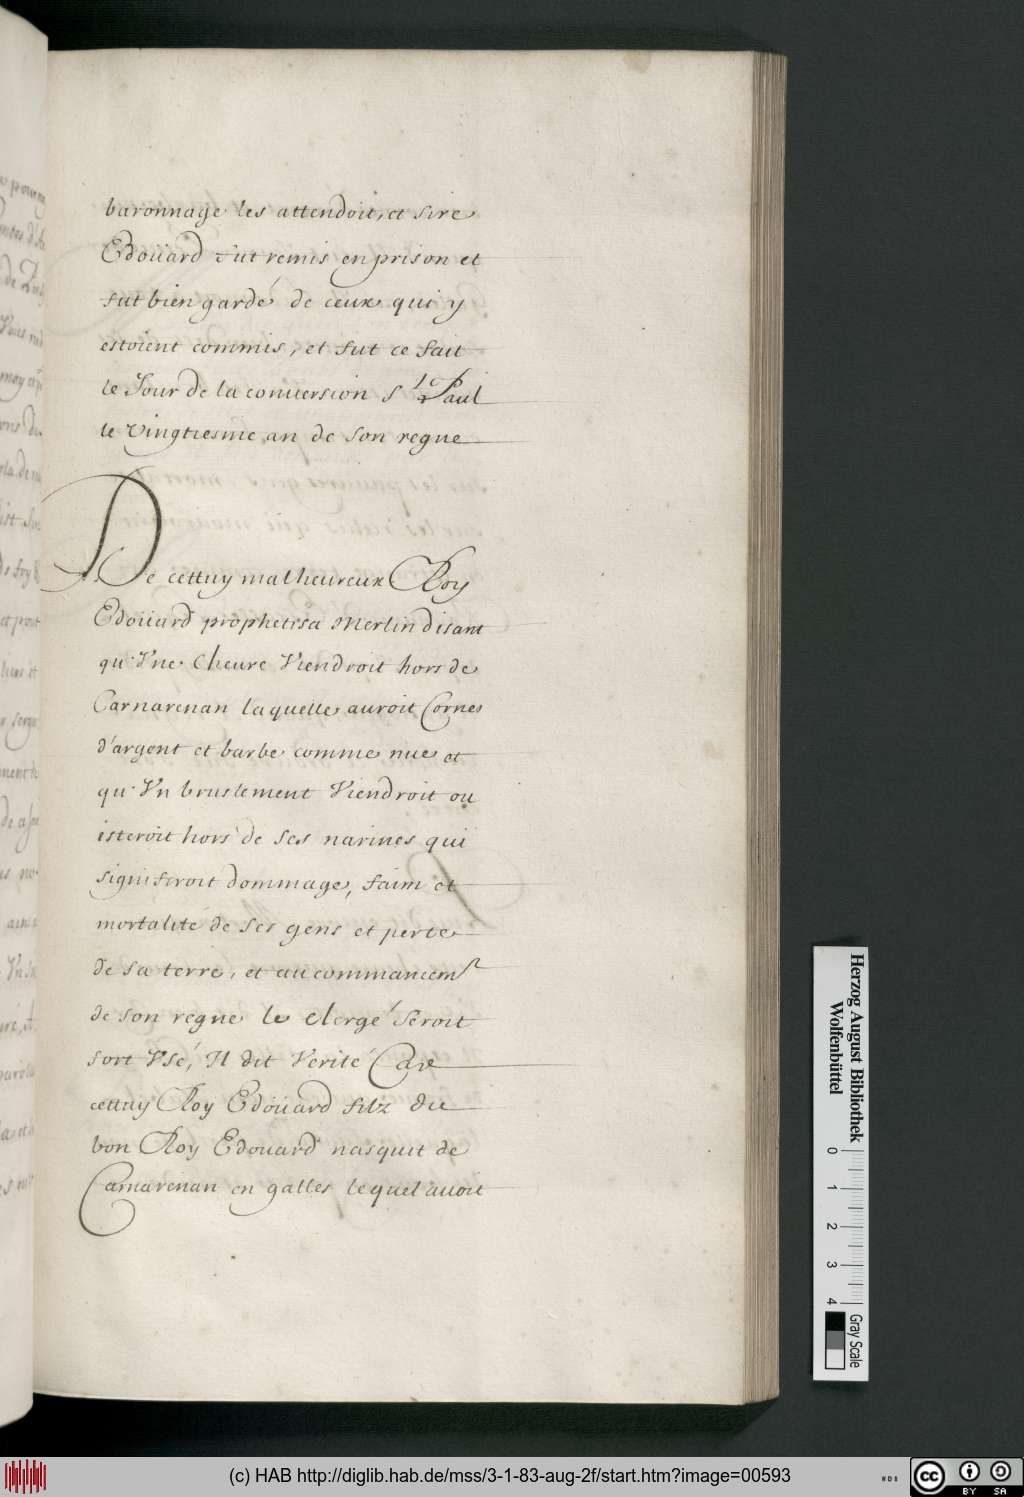 baronnage les attendoit, et sire
Edoüard fut remis en prison et
fut bien gardé de ceux qui y
estoient commis, et fut ce fait
le Jour de la conuersion St Paul
le vingtiesme an de son regne
De cettuy malheureux Roy
Edoüard prophetisa Merlin disant
qu'Vne Cheure Viendroit hors de
Carnarenan laquelle auroit Cornes
d'argent et barbe comme nue et
qu'Vn bruslement Viendroit ou
isteroit hors de ses narines qui
signifiroit dommage, faim et
mortalité de ses gens et perte
de sa terre, et au commancemt
de son regne le clergé seroit
fort Vsé, Il dit Verité Care
cettuy Roy Edoüard filz du
bon Roy Edouard nasquit de
Camarenan en galles lequel auoit
Herzog August Bibliothek
Wolfenbüttel
0 1 2 3 4
Gray Scale
(c) HAB http://diglib.hab.de/mss/3-1-83-aug-2f/start.htm?image=00593
WDB
cc BY SA